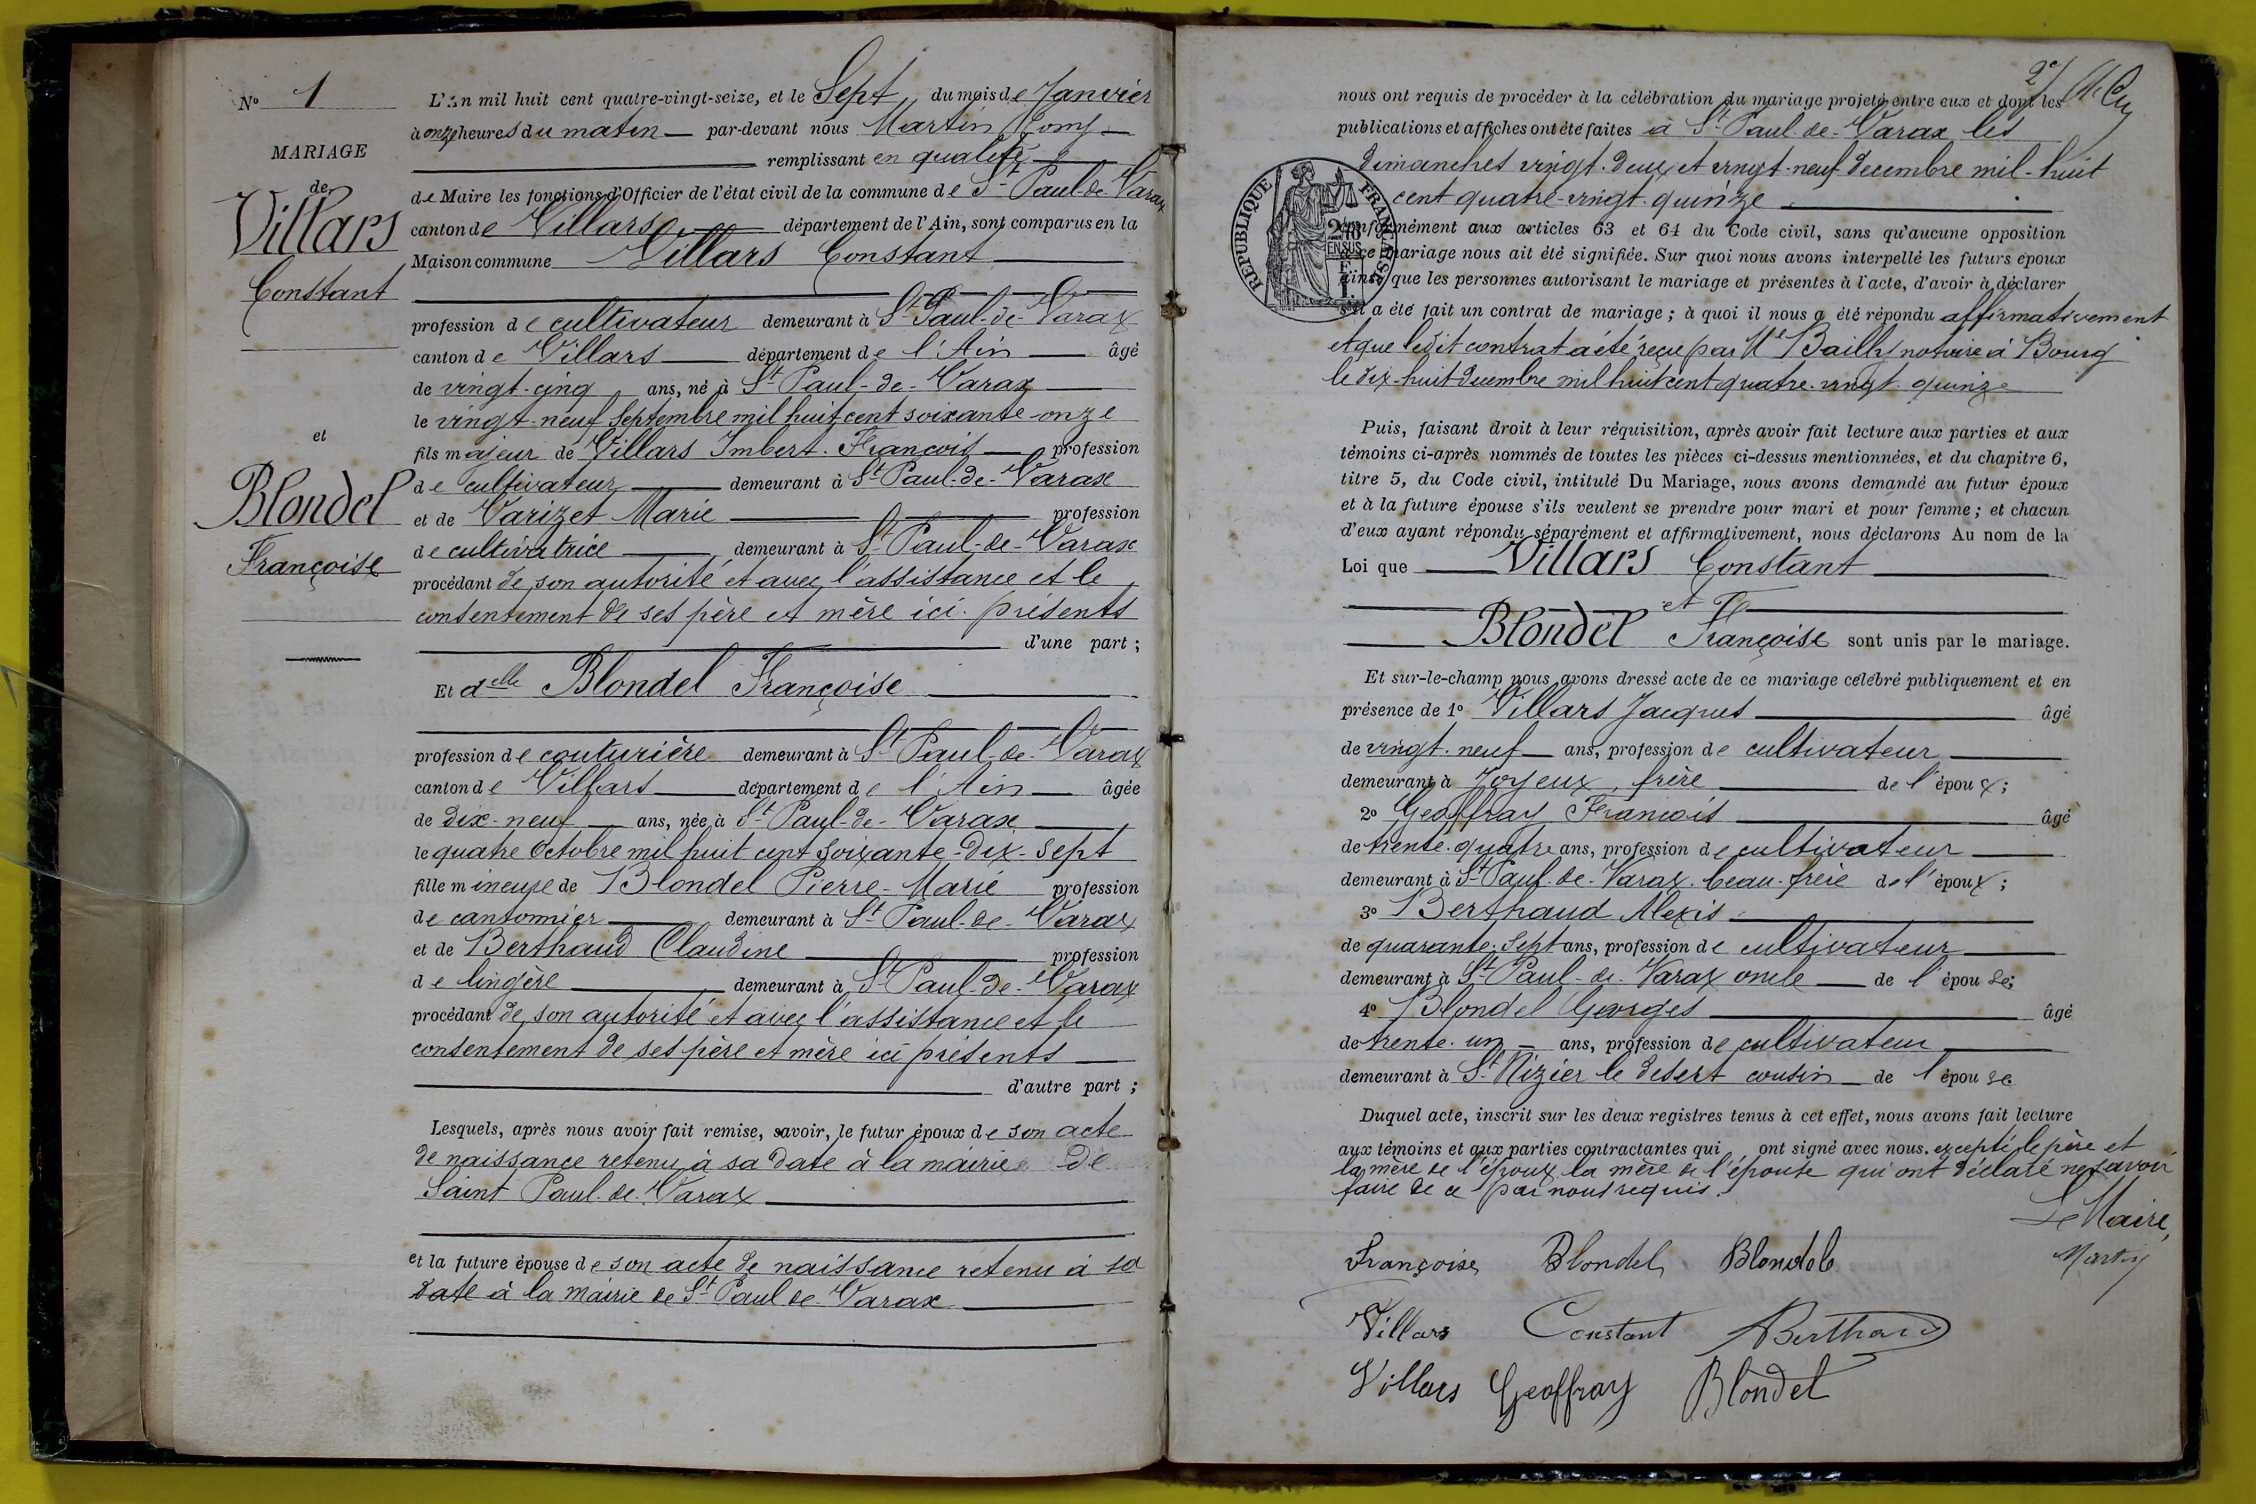 No 1
MARIAGE
de
Villars
Constant
et
Blondel
Françoise
L'An mil huit cent quatre-vingt-seize, et le Sept du mois de Janvier
à onze heures du matin par-devant nous Martin
remplissant en qualité
de Maire les fonctions d'Officier de l'état civil de la commune de St Paul-de-Varax
canton de Villars département de l'Ain, sont comparus en la
Maison commune Villars Constant
profession de cultivateur demeurant à St Paul-de-Varax
canton de Villars département de l'Ain âgé
de vingt-cinq ans, né à St Paul-de-Varax
le vingt-neuf Septembre mil huit cent soixante-onze
fils majeur de Villars Imbert-François profession
de cultivateur demeurant à St Paul-de-Varax
et de Varizet Marie profession
de cultivatrice demeurant à St Paul-de-Varax
procédant de son autorité et avec l'assistance et le
consentement de ses père et mère ici présents
d'une part ;
Et delle Blondel Françoise
profession de couturière demeurant à St Paul-de-Varax
canton de Villars département de l'Ain âgée
de dix-neuf ans, née à St Paul-de-Varax
le quatre Octobre mil huit cent soixante-dix-sept
fille mineure de Blondel Pierre-Marie profession
de cantonnier demeurant à St Paul-de-Varax
et de Berthaud Claudine profession
de lingère demeurant à St Paul-de-Varax
procédant de son autorité et avec l'assistance et le
consentement de ses père et mère ici présents
d'autre part ;
Lesquels, après nous avoir fait remise, savoir, le futur époux de son acte
de naissance retenu à sa date à la mairie de
Saint Paul-de-Varax
et la future épouse de son acte de naissance retenu à sa
date à la mairie de St Paul de Varax
2e/
nous ont requis de procéder à la célébration du mariage projeté entre eux et dont les
publications et affiches ont été faites à St Paul-de-Varax les
dimanches vingt-deux et vingt-neuf décembre mil-huit
cent quatre-vingt-quinze
RÉPUBLIQUE FRANÇAISE
conformément aux articles 63 et 64 du Code civil, sans qu'aucune opposition
à ce mariage nous ait été signifiée. Sur quoi nous avons interpellé les futurs époux
ainsi que les personnes autorisant le mariage et présentes à l'acte, d'avoir à déclarer
s'il a été fait un contrat de mariage ; à quoi il nous a été répondu affirmativement
et que ledit contrat a été reçu par Me Bailly notaire à Bourg
le dix-huit décembre mil huit cent quatre-vingt-quinze
Puis, faisant droit à leur réquisition, après avoir fait lecture aux parties et aux
témoins ci-après nommés de toutes les pièces ci-dessus mentionnées, et du chapitre 6,
titre 5, du Code civil, intitulé Du Mariage, nous avons demandé au futur époux
et à la future épouse s'ils veulent se prendre pour mari et pour femme ; et chacun
d'eux ayant répondu séparément et affirmativement, nous déclarons Au nom de la
Loi que Villars Constant
et
Blondel Françoise sont unis par le mariage.
Et sur-le-champ nous avons dressé acte de ce mariage célébré publiquement et en
présence de 1o Villars Jacques âgé
de vingt-neuf ans, profession de cultivateur
demeurant à Joyeux, frère de l'époux ;
2o Geoffray François âgé
de trente-quatre ans, profession de cultivateur
demeurant à St Paul-de-Varax beau-frère de l'époux ;
3o Berthaud Alexis
de quarante-sept ans, profession de cultivateur
demeurant à St Paul-de-Varax oncle de l'épouse ;
4o Blondel Georges âgé
de trente-un ans, profession de cultivateur
demeurant à St Nizier le désert cousin de l'épouse
Duquel acte, inscrit sur les deux registres tenus à cet effet, nous avons fait lecture
aux témoins et aux parties contractantes qui ont signé avec nous. excepté le père et
la mère de l'époux la mère de l'épouse qui ont déclaré ne savoir
faire de ce par nous requis.
Le Maire,
Martin
Françoise Blondel Blondel
Villars Constant ABerthaud
Villars Geoffray Blondel